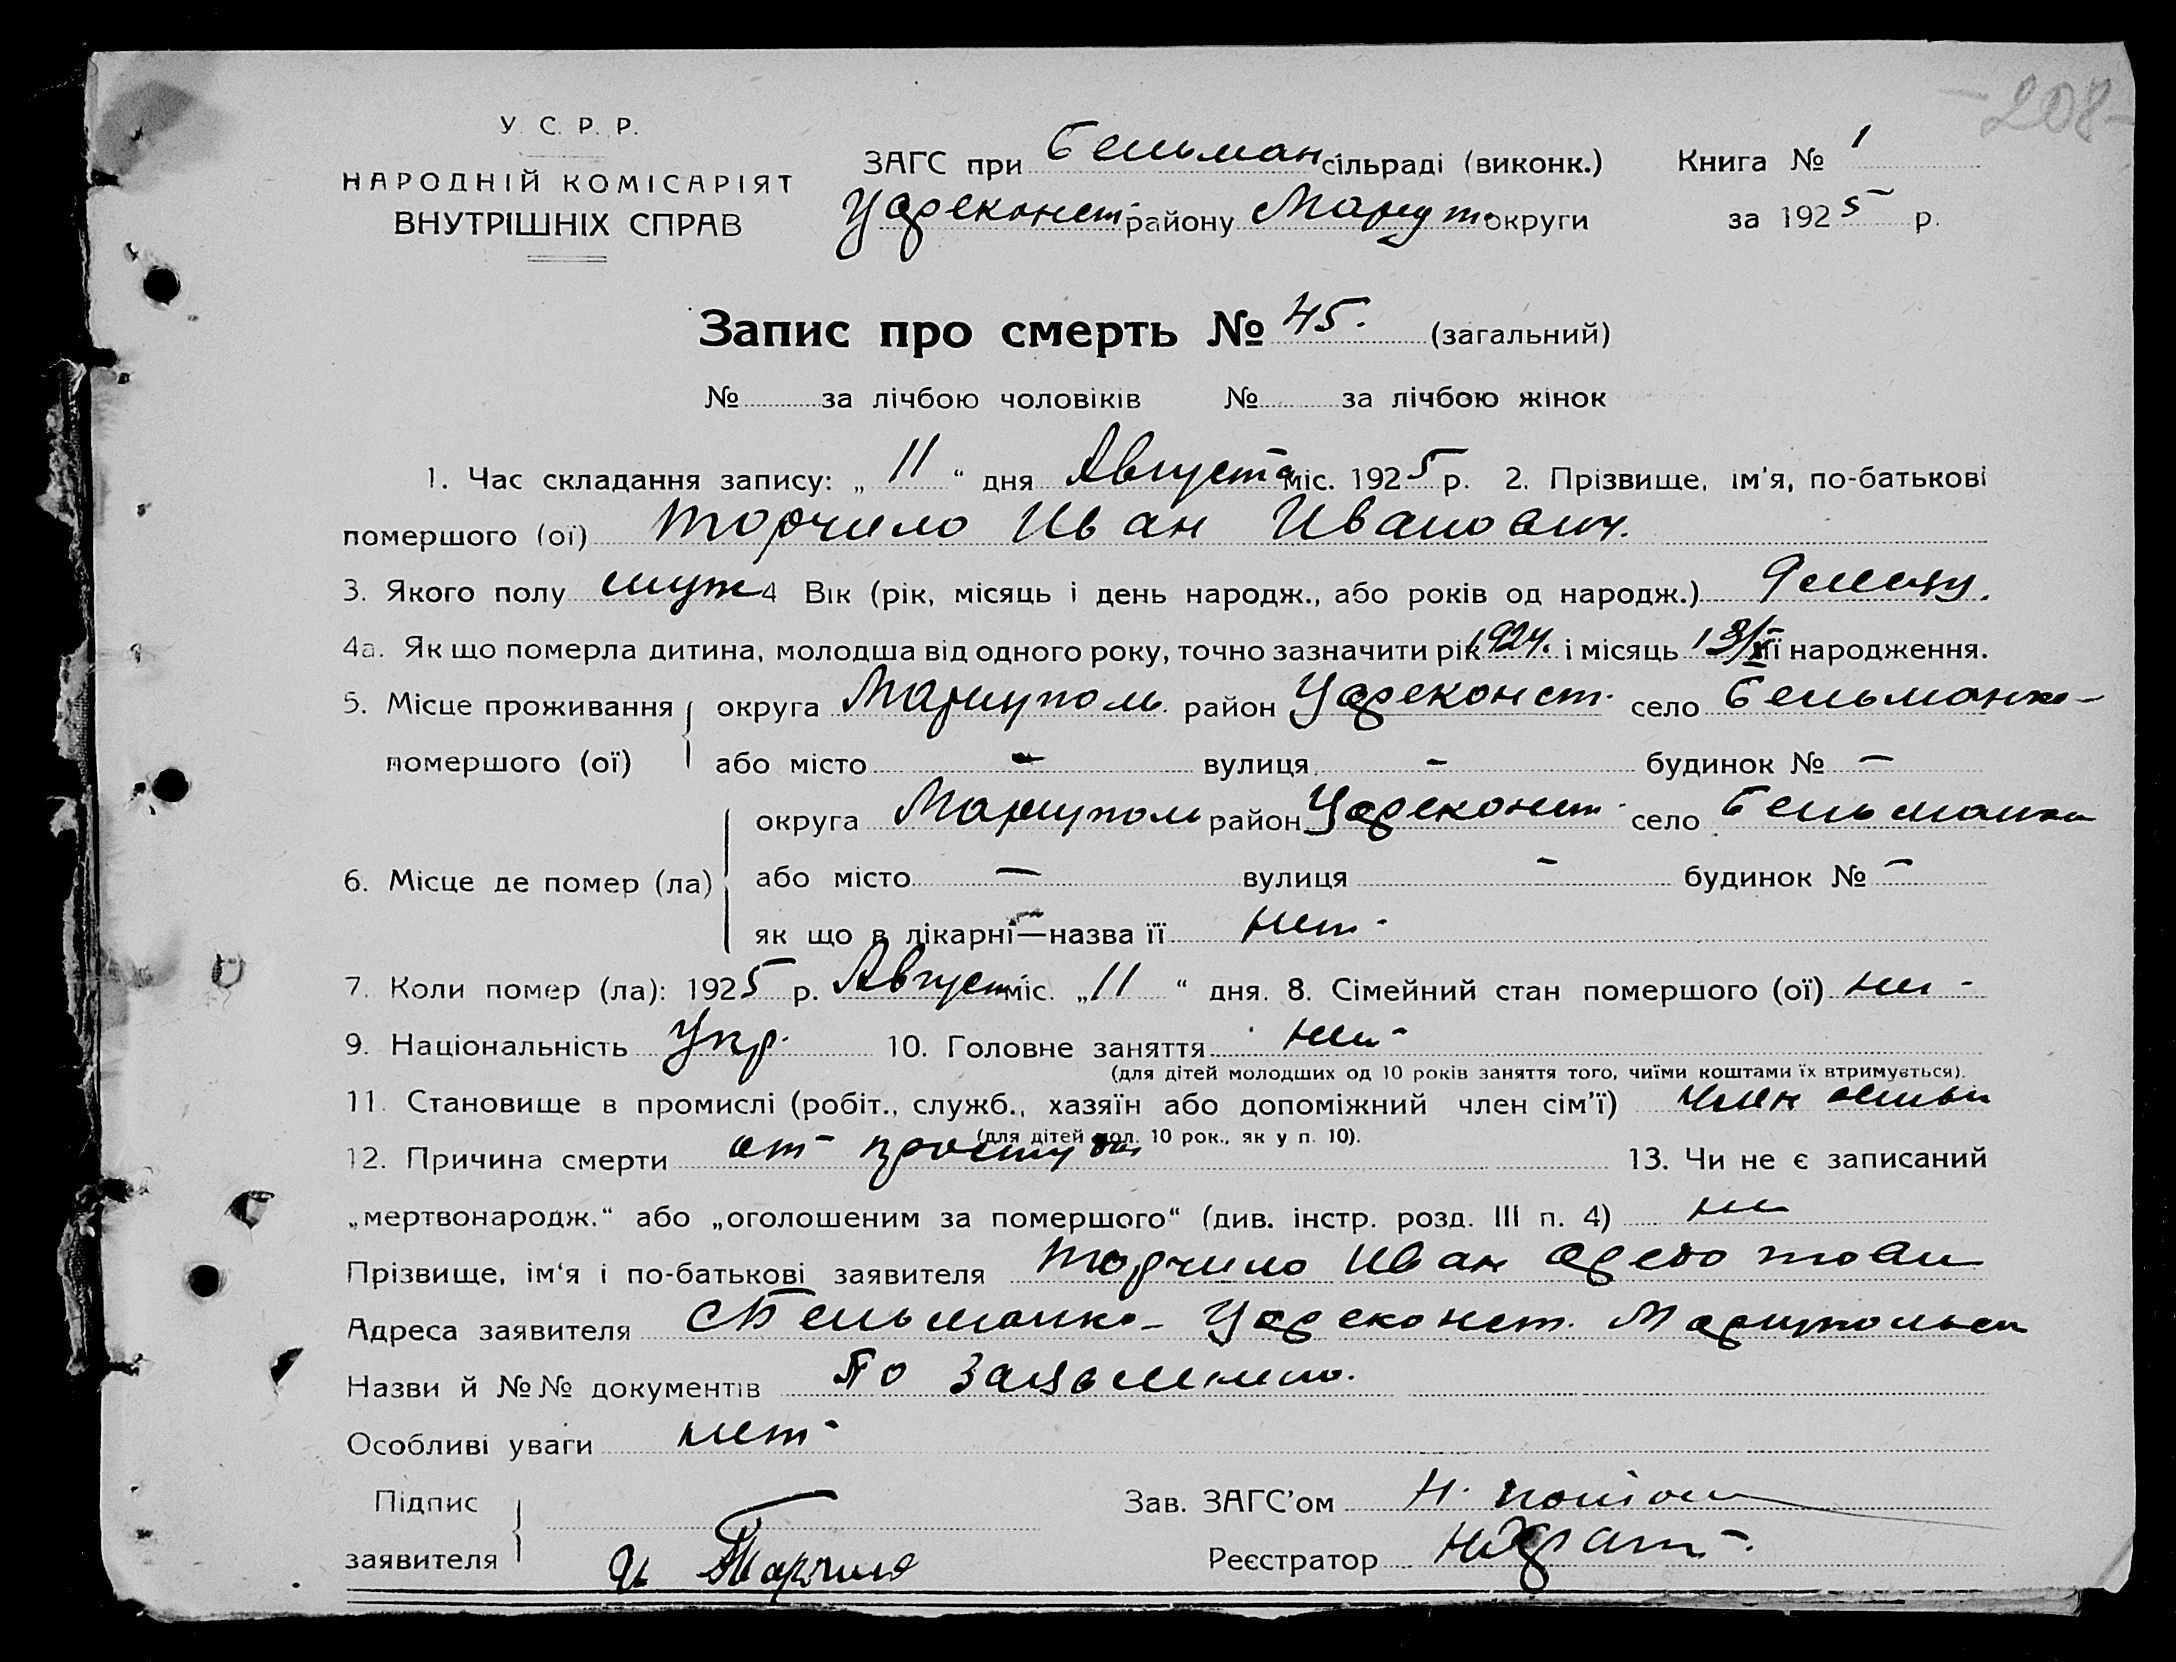 -208-
У. С. Р. Р.
НАРОДНІЙ КОМІСАРІЯТ
ВНУТРІШНІХ СПРАВ
ЗАГС при Бельман сільраді (виконк.) Книга № 1
Цареконст. району Мариуп. округи за 1925 р.
Запис про смерть № 45. (загальний)
№ за лічбою чоловіків № за лічбою жінок
1. Час складання запису: „ 11 “ дня Августа міс. 1925 р. 2. Прізвище, ім'я, по-батькові
помершого (ої) Торчило Иван Иванович.
3. Якого полу муж 4 Вік (рік, місяць і день народж., або років од народж.) 9 месяц.
4а. Як що померла дитина, молодша від одного року, точно зазначити рік 1924. і місяць її народження.
5. Місце проживання округа Мариуполь. район Цареконст. село Бельманка-
помершого (ої) або місто - вулиця - будинок № -
округа Мариуполь район Цареконст. село Бельманка
6. Місце де помер (ла) або місто - вулиця - будинок № -
як що в лікарні—назва її нет-
7. Коли помер (ла): 1925 р. Август міс. „ 11 “ дня. 8. Сімейний стан помершого (ої)
9. Національність Укр. 10. Головне заняття
(для дітей молодших од 10 років заняття того, чиїми коштами їх втримується).
11. Становище в промислі (робіт., служб., хазяїн або допоміжний член сім'ї) член семьи
(для дітей мол. 10 рок., як у п. 10).
12. Причина смерти от простуды 13. Чи не є записаний
„мертвонародж.“ або „оголошеним за помершого“ (див. інстр. розд. III п. 4)
Прізвище, ім‘я і по-батькові заявителя Торчило Иван
Адреса заявителя с Бельманка- Цареконст. Мариупольск
Назви й №№ документів По
Особливі уваги нет-
Підпис
заявителя И Торчило
Зав. ЗАГС'ом Н.
Реєстратор